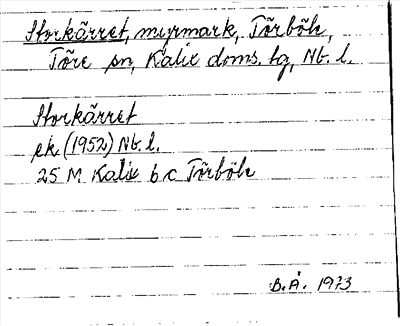 Storkärret, myrmark, Törböle,
Töre sn, Kalix doms. tg, Nb. l.
Storkärret
ek (1952) Nb. l.
25 M Kalix 6 c Törböle
B.Å. 1973